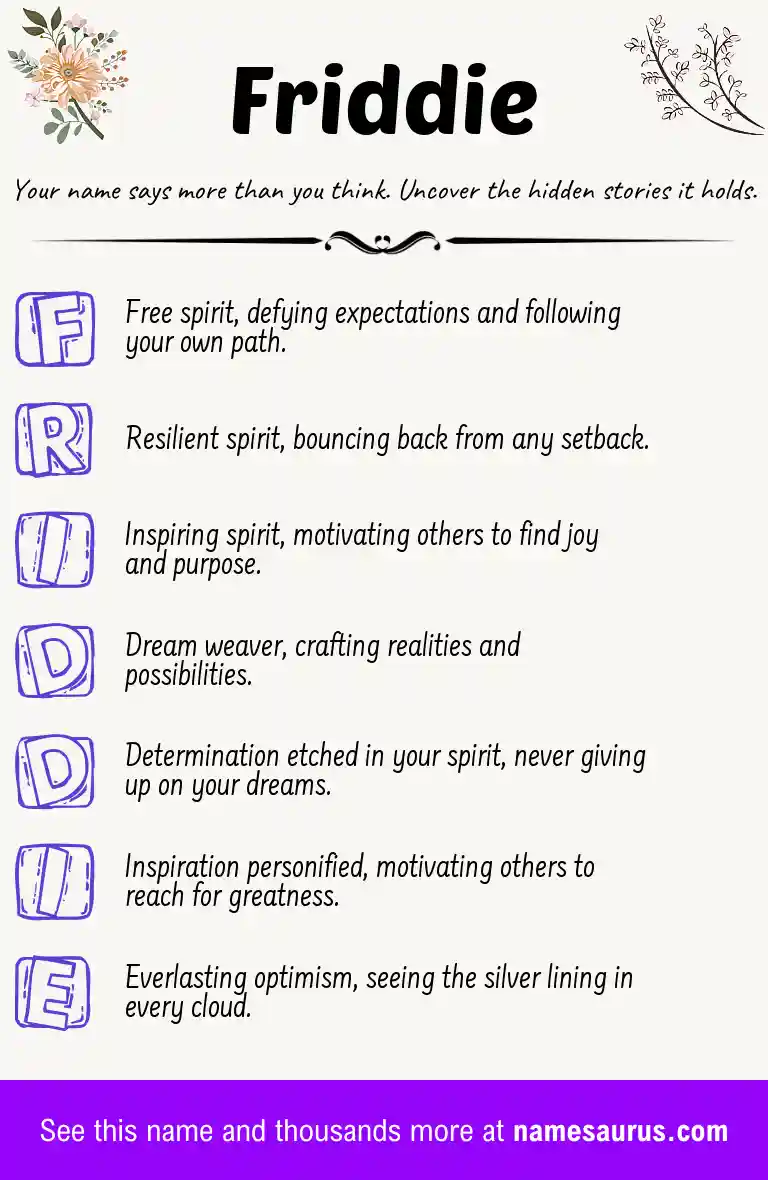 Friddie
Your name says more than you think. Uncover the hidden stories it holds.
F
Free spirit, defying expectations and following
your own path.
R
Resilient spirit, bouncing back from any setback.
I
Inspiring spirit, motivating others to find joy
and purpose.
D
Dream weaver, crafting realities and
possibilities.
D
Determination etched in your spirit, never giving
up on your dreams.
I
Inspiration personified, motivating others to
reach for greatness.
E
Everlasting optimism, seeing the silver lining in
every cloud.
See this name and thousands more at namesaurus.com